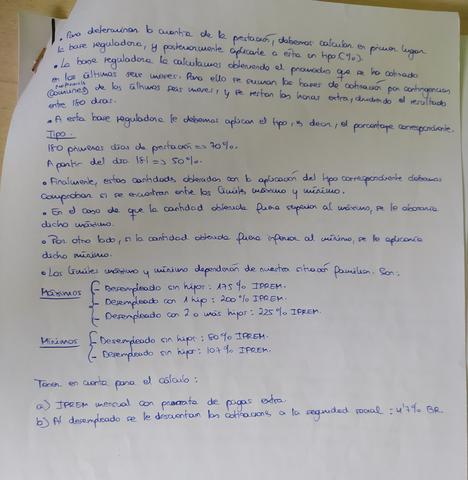 • Para determinar la cuantía de la prestación, debemos calcular en primer lugar
la base reguladora, y posteriormente aplicarle a esta un tipo (%).
• La base reguladora la calculamos obteniendo el promedio que se ha cotizado
en los últimos seis meses. Para ello se suman las bases de cotización por contingencias
comunes de los últimos seis meses, y se restan las horas extra, dividiendo el resultado
entre 180 días.
• A esta base reguladora le debemos aplicar el tipo, es decir, el porcentaje correspondiente.
Tipo.
180 primeros días de prestación => 70%.
A partir del día 181 => 50%.
• Finalmente, estas cantidades obtenidas con la aplicación del tipo correspondiente debemos
comprobar si se encuentran entre los límites máximo y mínimo.
• En el caso de que la cantidad obtenida fuera superior al máximo, se le abonaría
dicho máximo.
• Por otro lado, si la cantidad obtenida fuera inferior al mínimo, se le aplicaría
dicho mínimo.
• Los límites máximo y mínimo dependerán de nuestra situación familiar. Son:
Máximos - Desempleado sin hijos: 175% IPREM.
- Desempleado con 1 hijo: 200% IPREM.
- Desempleado con 2 o más hijos: 225% IPREM.
Mínimos - Desempleado sin hijos: 80% IPREM.
- Desempleado sin hijos: 107% IPREM.
Tener en cuenta para el cálculo:
a) IPREM mensual con prorrata de pagas extra.
b) Al desempleado se le descuentan las cotizaciones a la seguridad social: 4'7% BR.